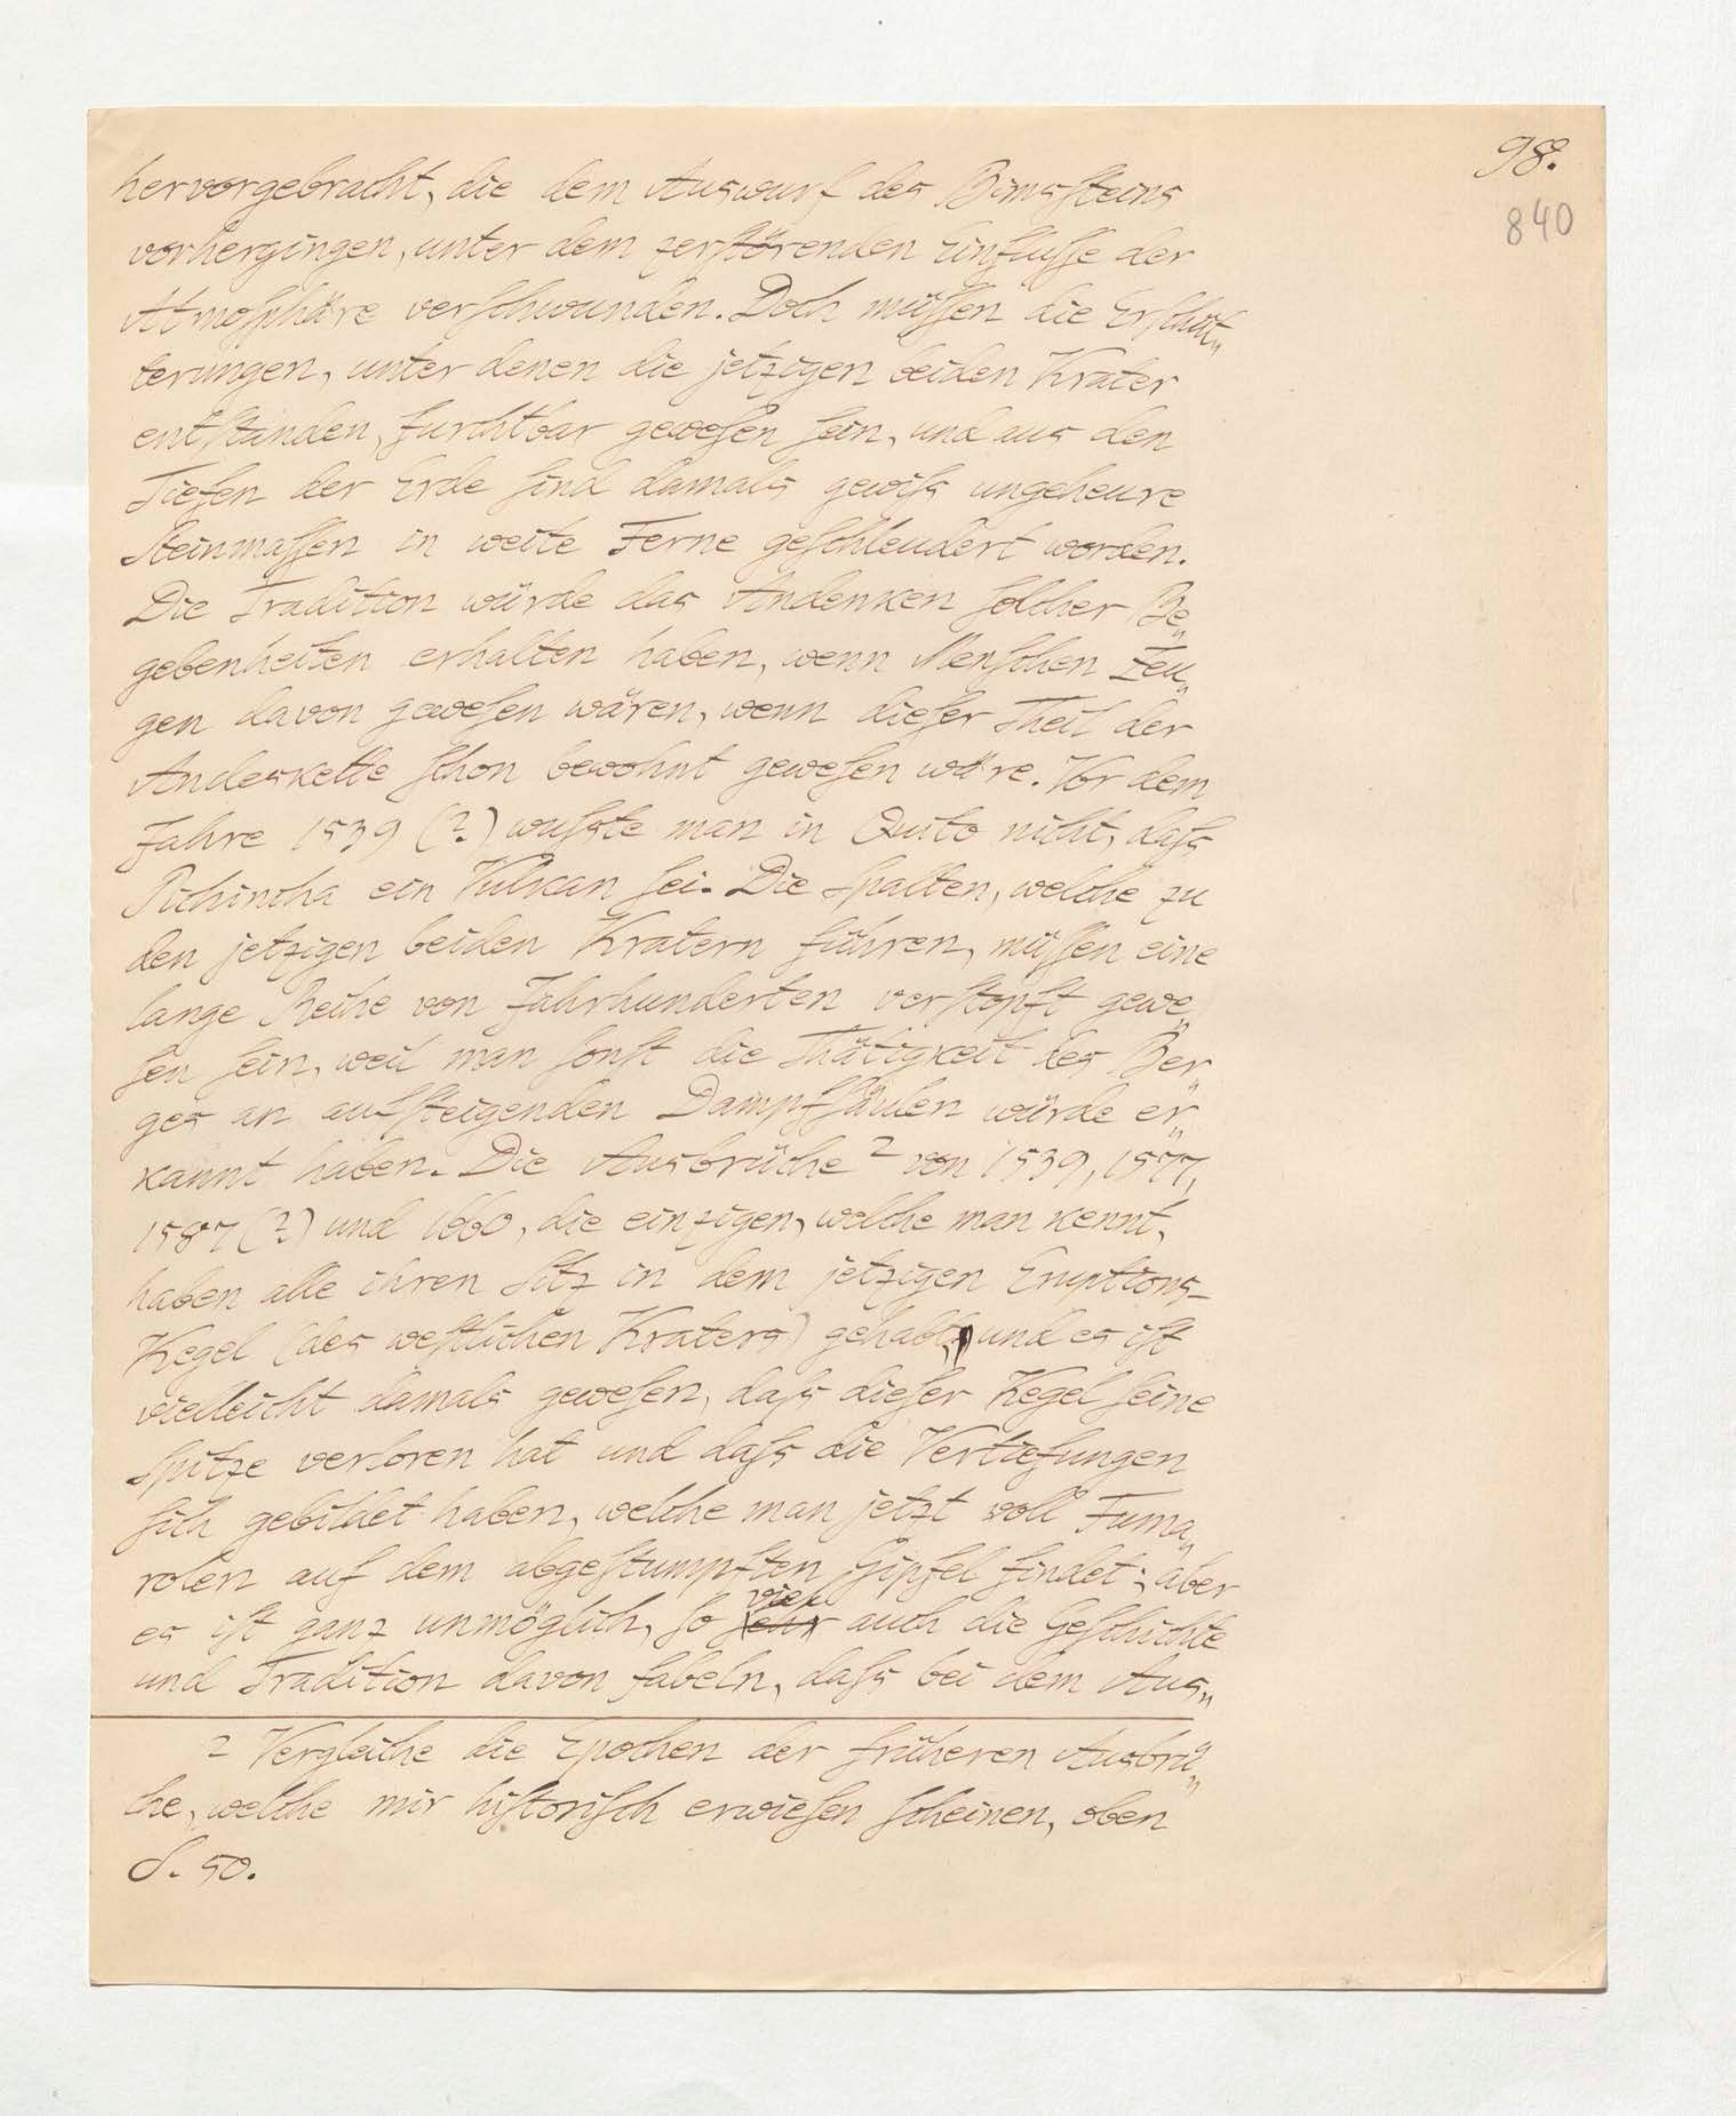 98.
840
hervorgebracht, die dem Auswurf des Bimssteins
vorhergingen, unter dem zerstörenden Einflusse der
Atmosphäre verschwunden. Doch müssen die Erschüt„
terungen, unter denen die jetzigen beiden Krater
entstanden, furchtbar gewesen sein, und aus den
Tiefen der Erde sind damals gewiss ungeheure
Steinmassen in weite Ferne geschleudert worden.
Die Tradition würde das Andenken solcher Be„
gebenheiten erhalten haben, wenn Menschen Zeu„
gen davon gewesen wären, wenn dieser Theil der
Andeskette schon bewohnt gewesen wäre. Vor dem
Jahre 1539 (?) wusste man in Quito nicht, dass
Pichincha ein Vulkan sei. Die Spalten, welche zu
den jetzigen beiden Kratern führen, müssen eine
lange Reihe von Jahrhunderten verstopft gewe„
sen sein, weil man sonst die Thätigkeit des Ber„
ges an aufsteigenden Dampfsäulen würde er„
kannt haben. Die Ausbrüche 2 von 1539, 1577,
1587 (?) und 1660, die einzigen, welche man kennt,
haben alle ihren Sitz in dem jetzigen Eruptions-
Kegel (des westlichen Kraters) gehabt, und es ist
vielleicht damals gewesen, dass dieser Kegel seine
Spitze verloren hat und dass die Vertiefungen
sich gebildet haben, welche man jetzt voll Fuma„
rolen auf dem abgestumpften Gipfel findet; aber
viel
es ist ganz unmöglich, so sehr auch die Geschichte
und Tradition davon fabeln, dass bei dem Aus„
2 Vergleiche die Epochen der früheren Ausbrü„
che, welche mir historisch erwiesen scheinen, oben
S. 50.